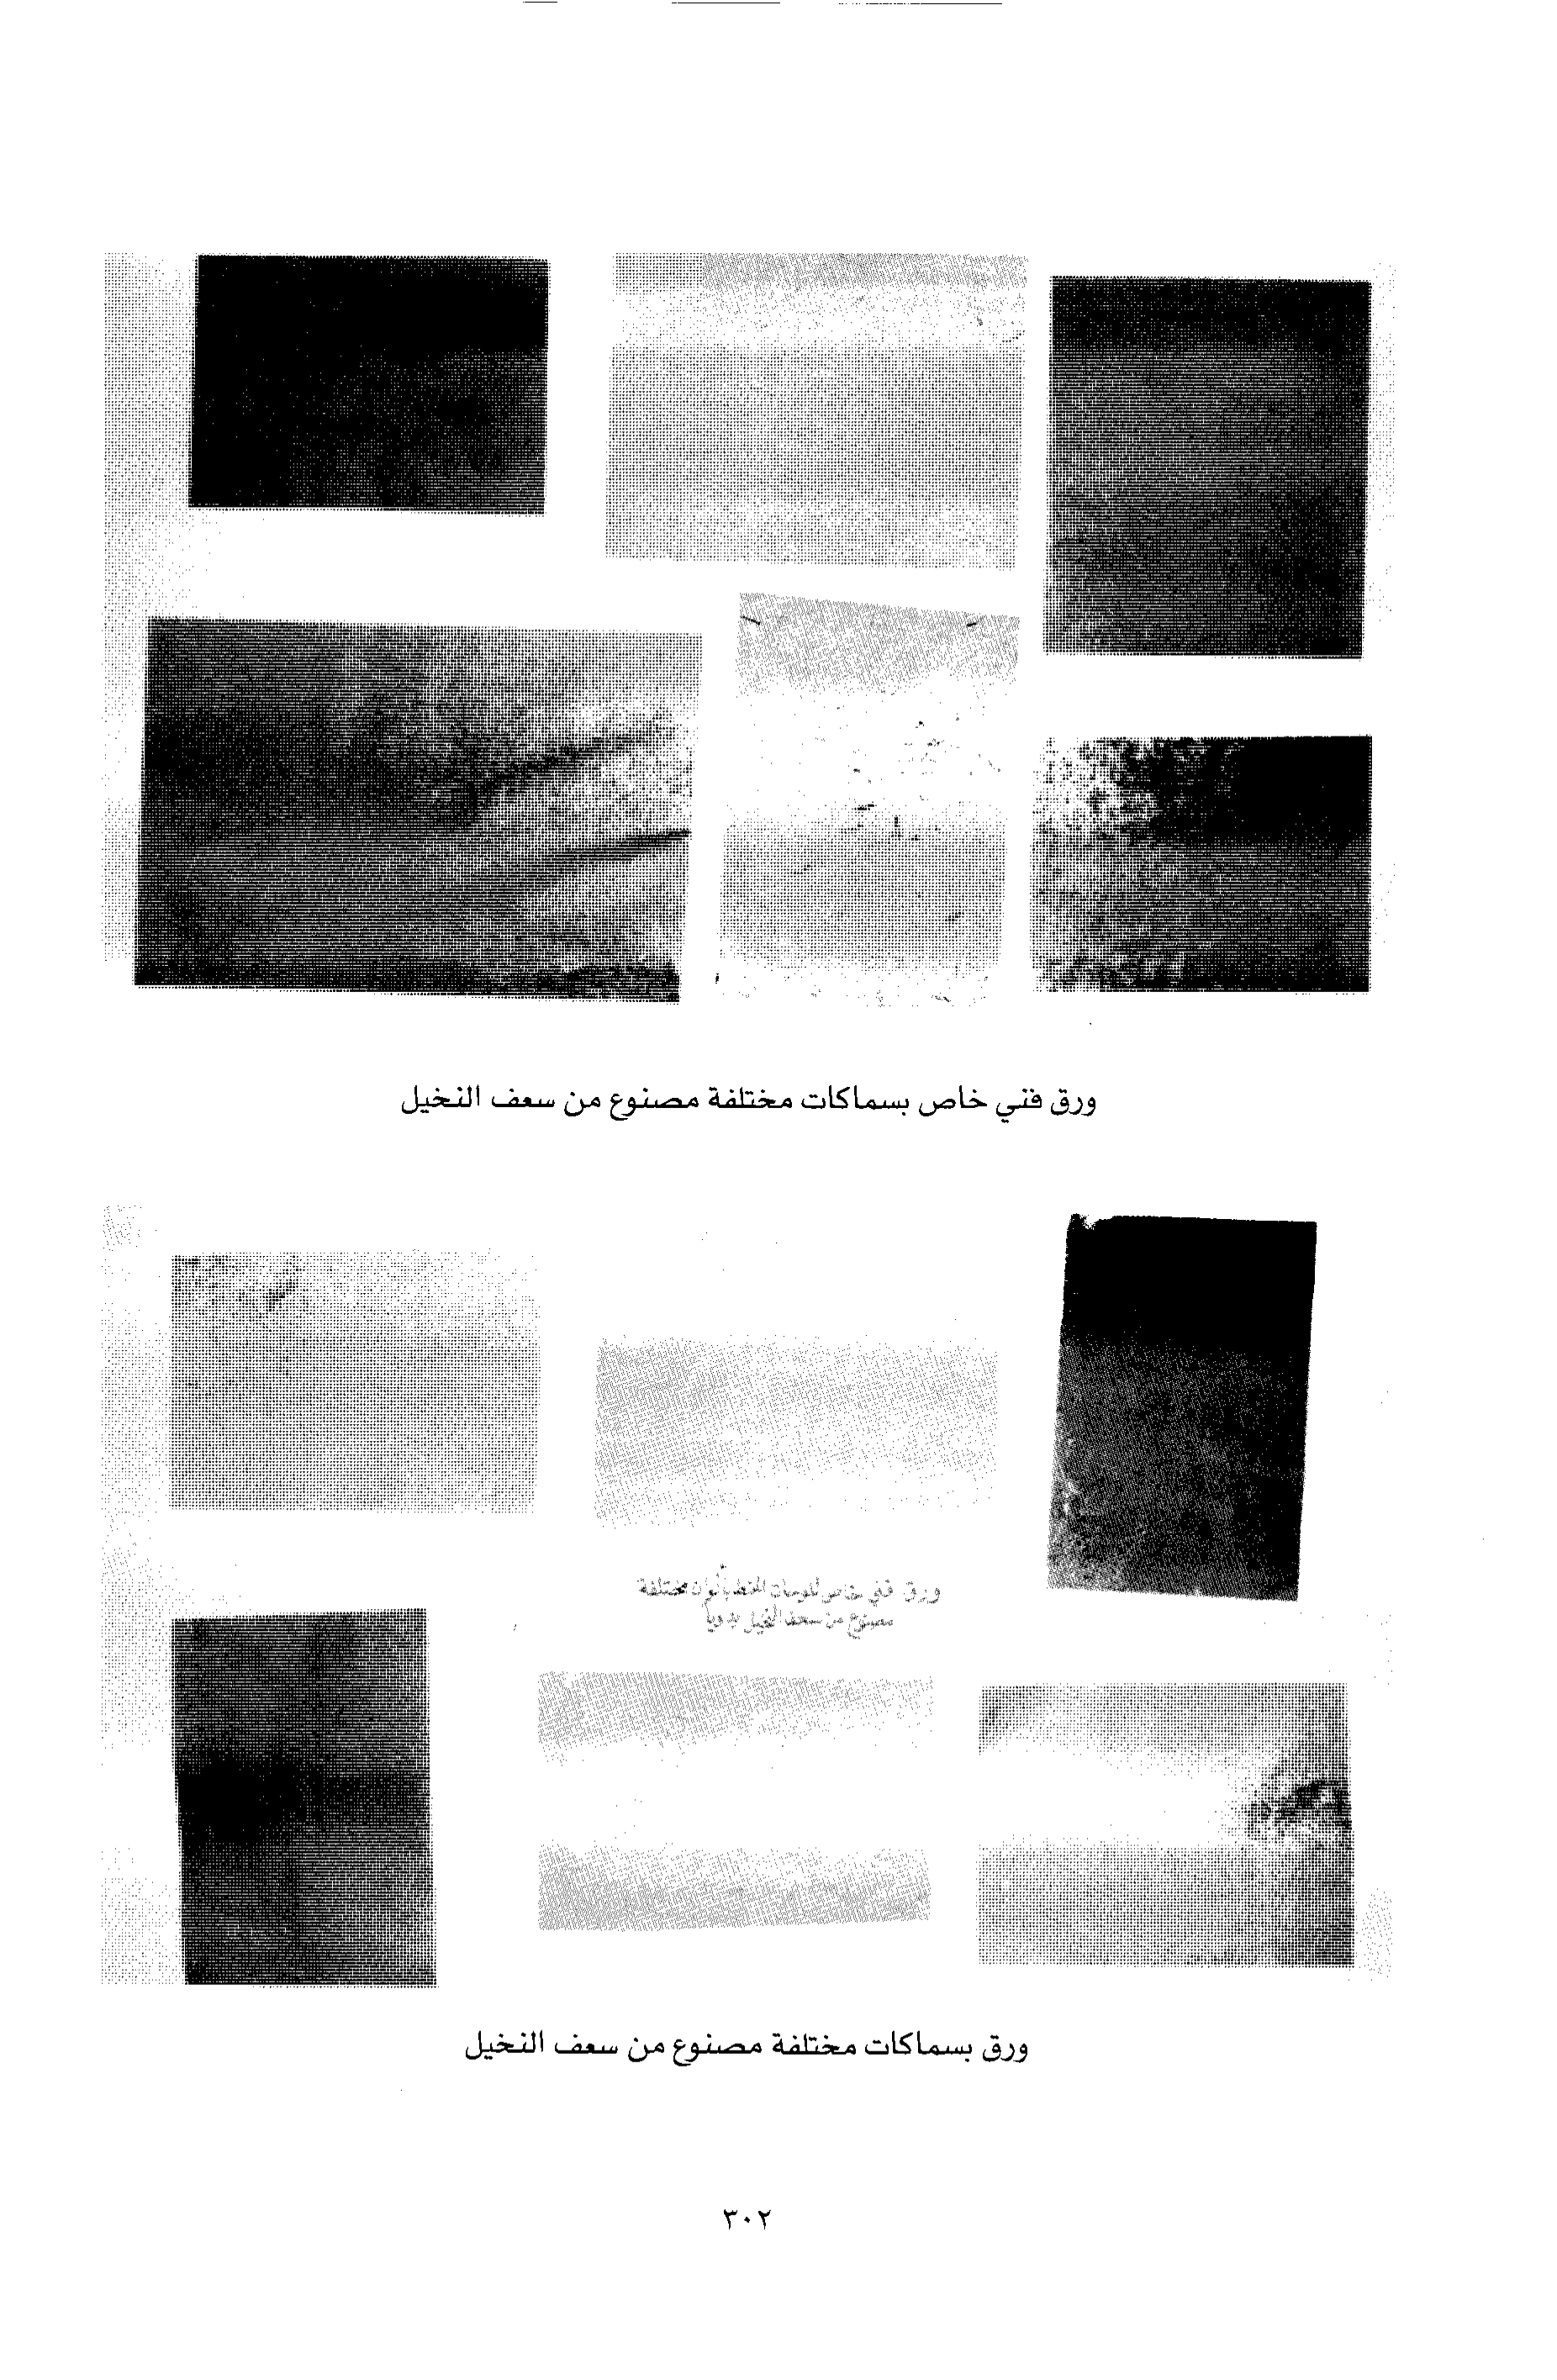 ورق فني خاص بسماكات مختلفة مصنوع من سعف النخيل
ورق فني خاص للوحات الخط بألوان مختلفة
مصنوع من سعف النخيل يدوياً
ورق بسماكات مختلفة مصنوع من سعف النخيل
٣٠٢